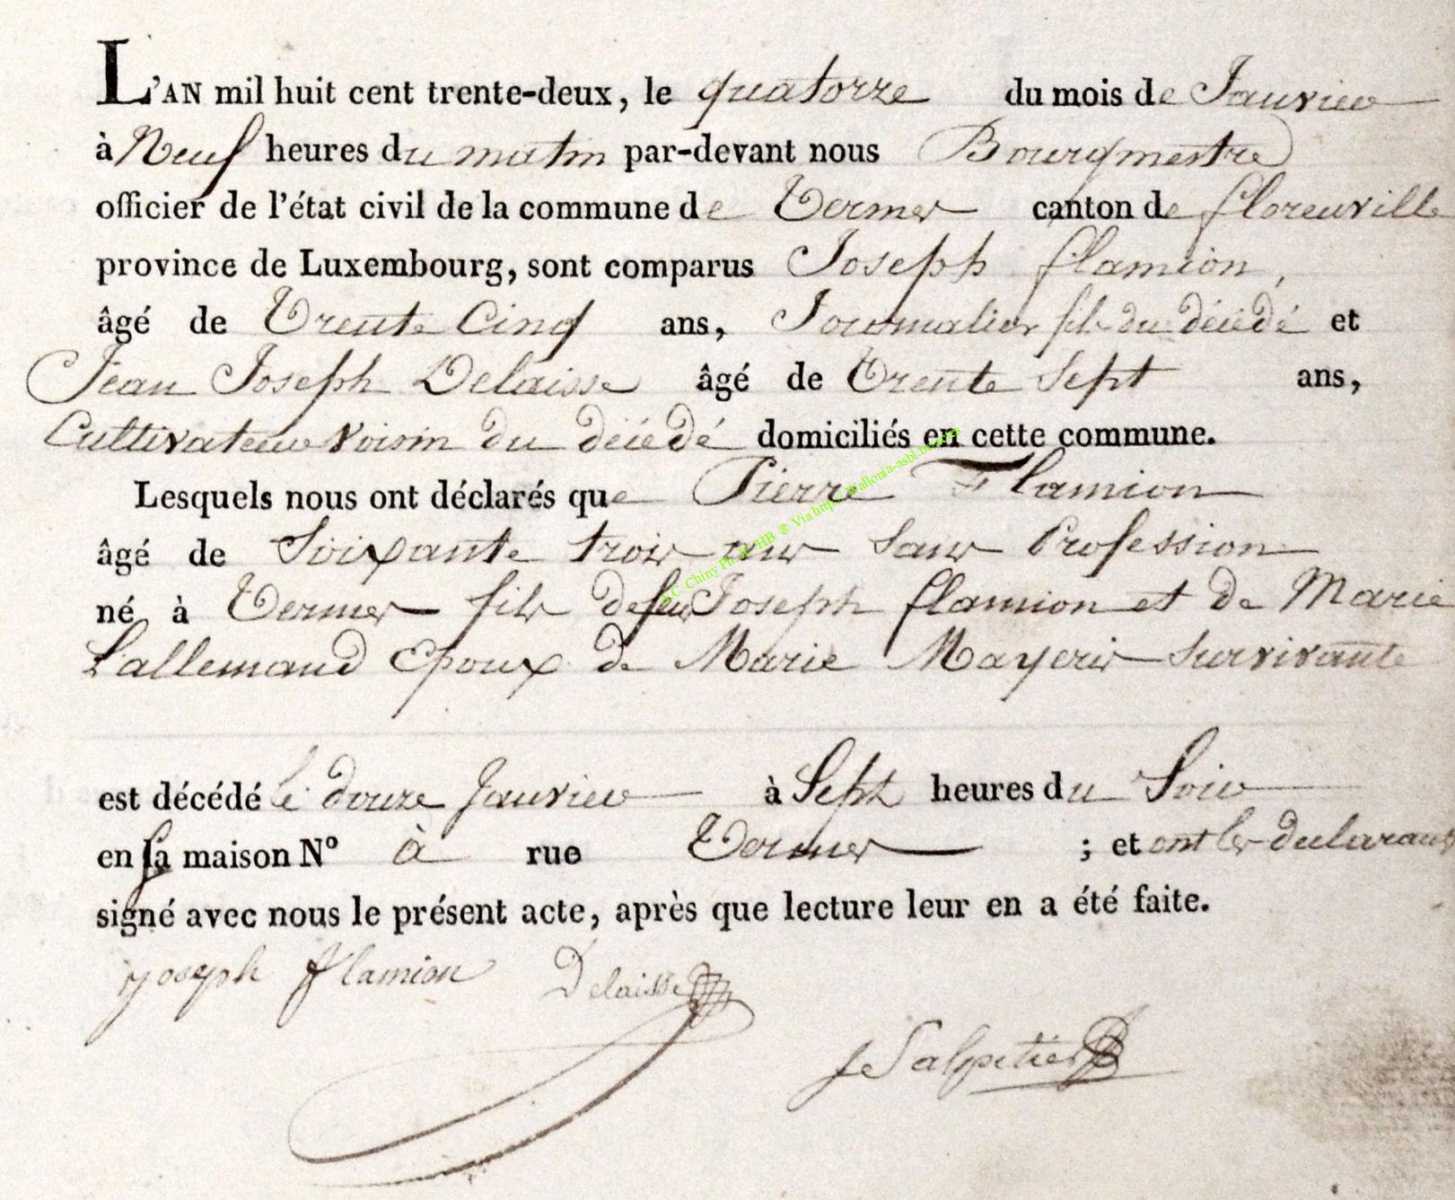 L'AN mil huit cent trente-deux, le quatorze du mois de Janvier
à Neuf heures du matin par-devant nous Bourgmestre
officier de l'état civil de la commune de Termes canton de florenville
province de Luxembourg, sont comparus Joseph flamion,
âgé de Trente Cinq ans, Journalier fils du décédé et
Jean Joseph Delaisse âgé de Trente Sept ans,
Cultivateur voisin du décédé domiciliés en cette commune.
Lesquels nous ont déclarés que Pierre Flamion
âgé de Soixante trois ans sans Profession
né à Termes fils de feu Joseph flamion et de Marie
Lallemand Epoux de Marie Mayeris survivante
est décédé le douze Janvier à Sept heures du Soir
en sa maison N° à rue Termes ; et ont les declarans
signé avec nous le présent acte, après que lecture leur en a été faite.
joseph flamion Delaisse
J Salpetier